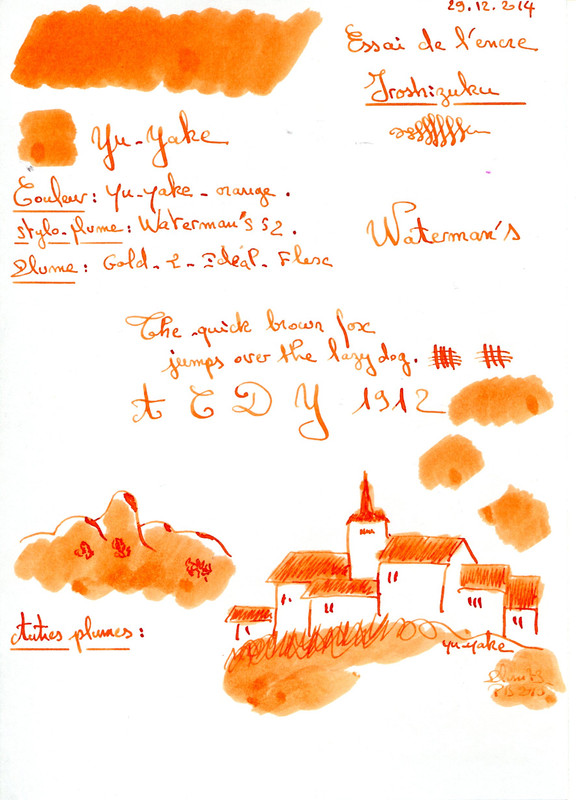 29.12.2014
Essai de l'encre
Iroshizuku
Yu-Yake
Couleur: Yu-yake - orange.
Stylo-plume: Waterman's 52.
Waterman's
Plume: Gold - 2 - Idéal - Flex
The quick brown fox
jumps over the lazy dog.
A C D Y 1912
Autres plumes:
yu-yake